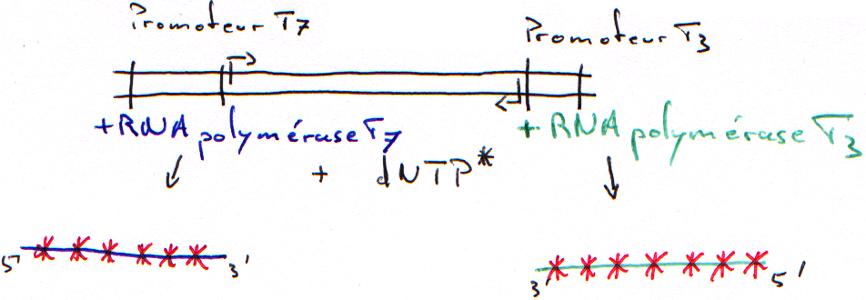 Promoteur T7
Promoteur T3
+RNA polymérase T7
+ RNA polymérase T3
+ dNTP*
5' 3'
3' 5'